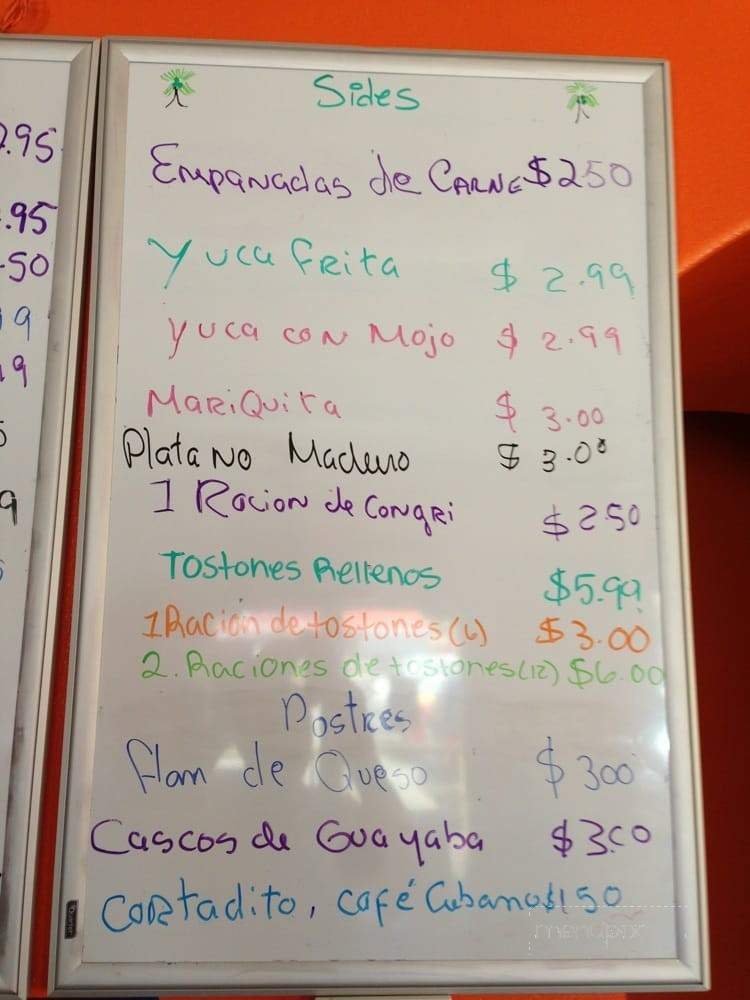 Sides
Empanadas de Carne $250
Yuca frita $ 2.99
Yuca con Mojo $ 2.99
MariQuita $ 3.00
Platano Maduro $ 3.00
1 Racion de Congri $250
Tostones Rellenos $5.99
1 Racion de tostones (6) $3.00
2. Raciones de tostones (12) $6.00
Postres
flan de Queso $300
Cascos de Guayaba $3.00
Cortadito, café Cubano $150
menupix
.95
.95
.50
9
.19
5
9